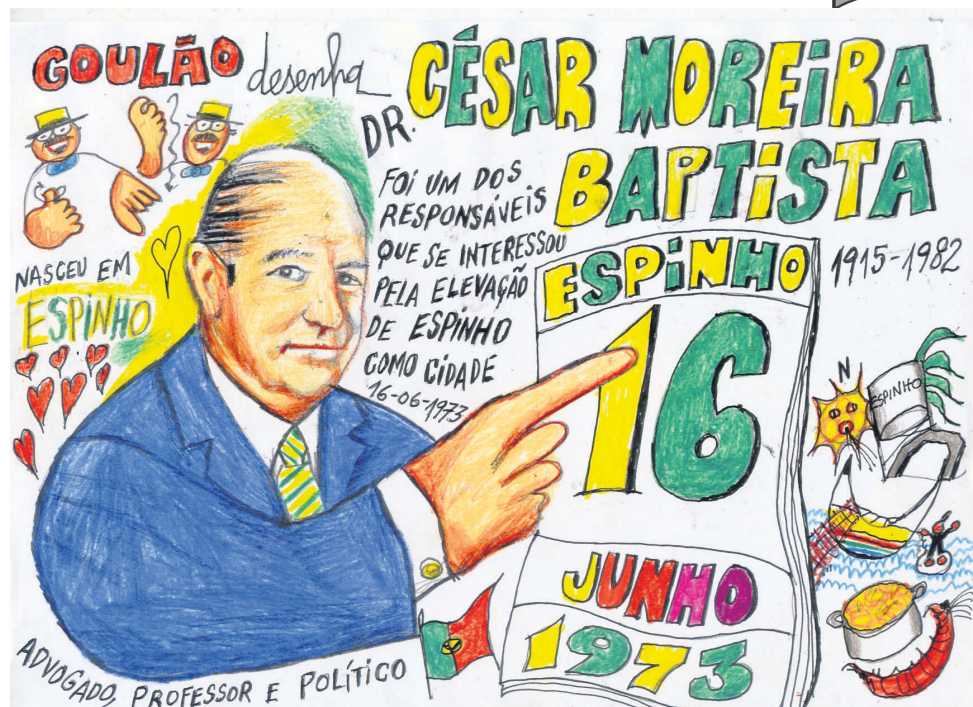 GOULÃO desenha
DR. CÉSAR MOREIRA
BAPTISTA
1915-1982
FOI UM DOS
RESPONSÁVEIS
QUE SE INTERESSOU
PELA ELEVAÇÃO
DE ESPINHO
COMO CIDADE
16-06-1973
NASCEU EM
ESPINHO
ESPINHO
16
JUNHO
1973
N
ESPINHO
ADVOGADO, PROFESSOR E POLÍTICO